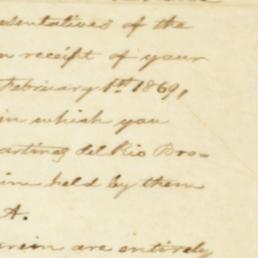 esentatives of the
n receipt of your
February 1st 1869,
in which you
artinez del Rio Bro-
ine held by them
A.
erein are entirely